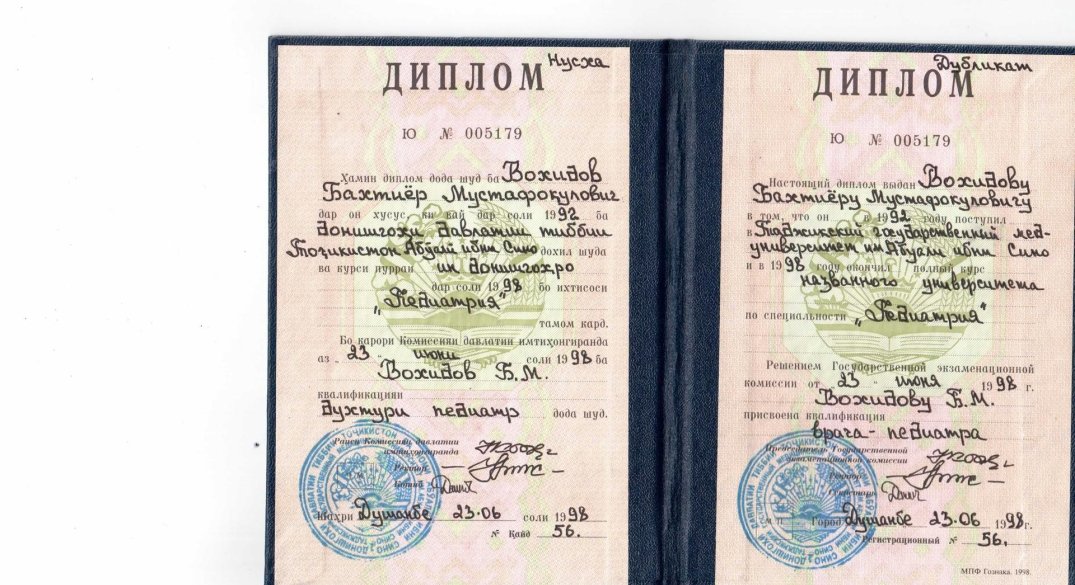 ДИПЛОМ Нусха
Ю № 005179
Ҳамин диплом дода шуд ба Вохидов
Бахтиёр Мустафокулович
дар он хусус ки вай дар соли 1992 ба
донишгохи давлатии тиббии
Тоҷикистон Абӯалӣ ибни Сино дохил шуда
ва курси пурраи ин донишгохро
дар соли 1998 бо ихтисоси
"Педиатрия"
тамом кард.
Бо қарори Комиссияи давлатии имтиҳонгиранда
аз " 23 " июни соли 1998 ба
Вохидов Б.М.
квалификацияи
духтури педиатр дода шуд.
Раиси Комиссияи давлатии
имтиҳонгиранда
Ректор
Котиб
Шаҳри Душанбе 23.06 соли 1998
№ Қайд 56.
Дубликат
ДИПЛОМ
Ю № 005179
Настоящий диплом выдан Вохидову
Бахтиёру Мустафокуловичу
в том, что он в 1992 году поступил
в Таджикский государственный мед-
университет им Абуали ибни Сино
и в 1998 году окончил полный курс
названного университета
по специальности "Педиатрия"
Решением Государственной экзаменационной
комиссии от 23 " июня 1998 г.
Вохидову Б.М.
присвоена квалификация
врача-педиатра
Председатель Государственной
экзаменационной комиссии
Ректор
Секретарь
М.П. Город Душанбе 23.06 1998г.
Регистрационный № 56.
МПФ Гознака. 1998.